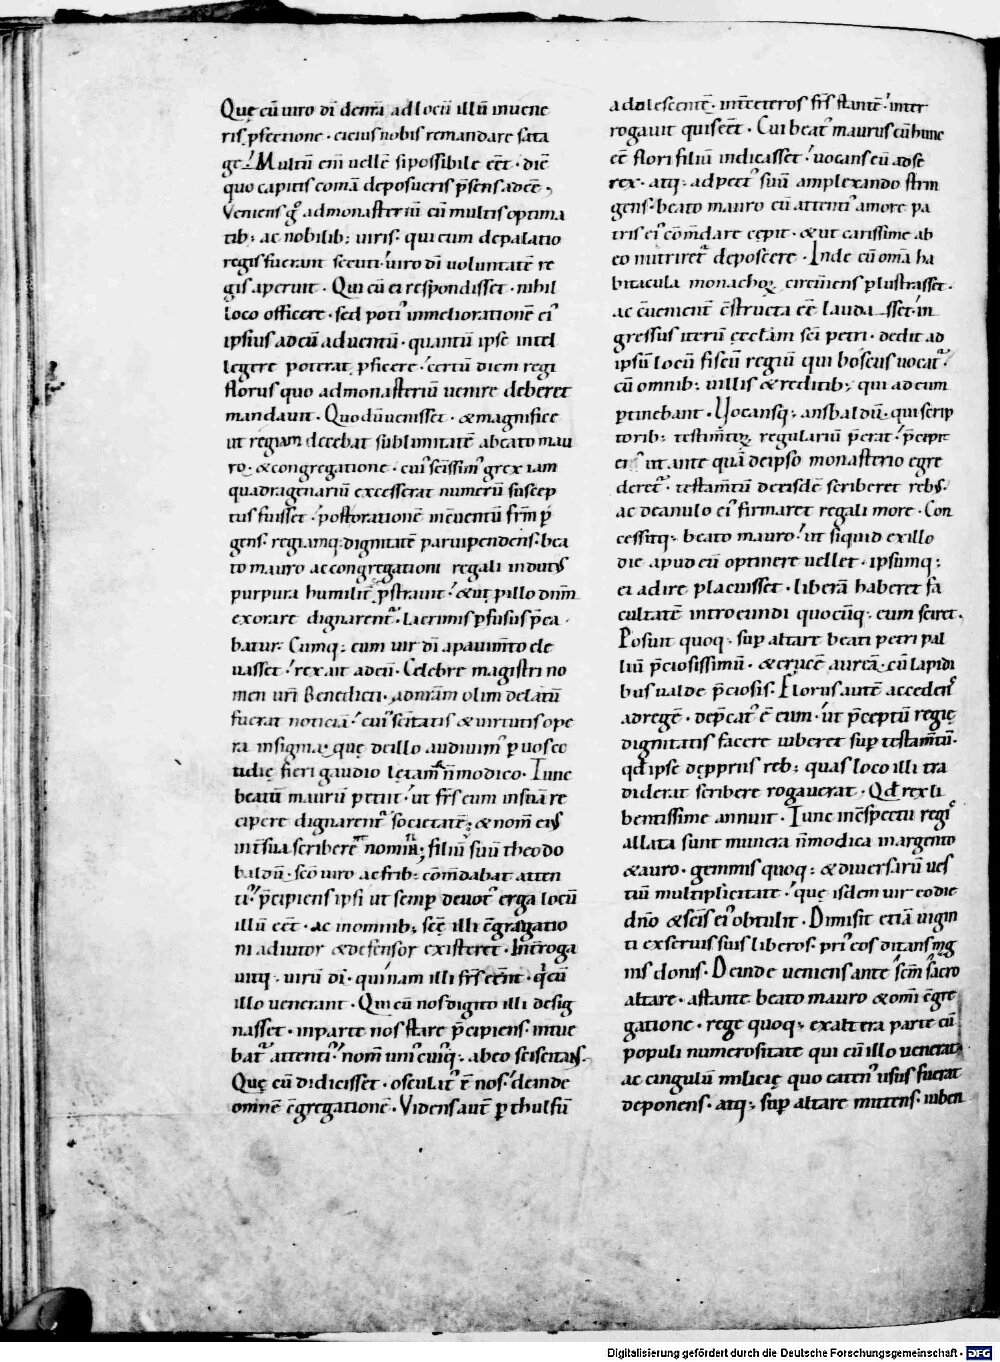 Quę cū uiro dī de nr̄a ad locū illū inuene
ris ꝓfectione · cicius nobis remandare sata
ge · Multū eni uellē si possibile eēt · diē
quo capitis comā deposueris p̄sens adeē ·
Veniens gͦ ad monasteriū cū multis optima
tib; ac nobilib; uiris · qui cum de palatio
regis fuerant secuti · uiro dī uoluntatē re
gis aperuit · Qui cū ei respondisset · nihil
loco officere · sed poti᾽ in meliorationē ei᾽
ipsius ad eū aduentū · quantū ipse intel
legere poterat ꝓficere · certū diem regi
florus quo ad monasteriū uenire deberet
mandauit · Quo dū uenisset · & magnifice
ut regiam decebat sublimitatē a beato mau
ro · & congregatione · cui᾽ scīssim᾽ grex iam
quadragenariū excesserat numerū suscep
tus fuisset · post orationē in cuentū frm̄ ꝑ
gens · regiamq; dignitatē paruipendens · bea
to mauro ac congregationi regali indutus
purpura humilit̄ ꝓstrauit · & ut ꝓ illo dnm̄
exorare dignarent᾽ · lacrimis ꝓfusus p̄ca
batur · Cumq; eum uir dī a pauim̄to ele
uasset · rex ait ad eū · Celebre magistri no
men uri Benedicti · ad nr̄am olim delatū
fuerat noticiā · cui᾽ scītatis & uirtutis ope
ra insignia · quę de illo audiuim᾽ ꝑ uos co
tidię fieri gaudio lętam᾽ n̄ modico · Tunc
beatū maurū petiit · ut frs̄ eum in suā re
cipere dignarent᾽ societatē · & nom̄ eius
int̄ sua scriberēt nomina; filiū suū theodo
baldū · scō uiro ac frib; cōm̄dabat atten
ti᾽ · p̄cipiens ipsi ut semꝑ deuot᾽ erga locū
illū eēt · ac in omnib; scę̄ illi cgregatio
ni adiutor & defensor existeret · Int̄roga
uitq; uirū dī · qui nam illi frs̄ eent · qͥ cū
illo uenerant · Qui cū nos digito illi desig
nasset · in parte nos stare p̄cipiens · intue
bat᾽ attenti᾽ · nom̄ uni᾽ cuiq; ab eo sciscitans ·
Quę cū didicisset · osculat᾽ ē nos · deinde
omnē cgregationē · Vidēns aut̄ ꝑthulfū
adolescentē · int̄ ceteros frs̄ stantē · inter
rogauit qui seēt · Cui beat᾽ maurus cū hunc
eē flori filiū indicasset · uocans eū ad se
rex · atq; ad pect᾽ suū amplexando strin
gens · beato mauro cū attenti᾽ amore pa
tris ei᾽ cōm̄dare cepit · & ut carissime ab
eo nutriret᾽ deposcere · Inde cū om̄a ha
bitacula monachoꝝ circūiens ꝑlustrasset ·
ac cuenient cstructa eē lauda sset · in
gressus iterū ęcclām scī petri · dedit ad
ipsū locū fiscū regiū qui boscus uocat᾽
cū omnib; uillis & reditib; qui ad eum
ꝑtinebant · Vocansq; ansbaldū · qui scrip
torib; testim̄toꝝ regulariū p̄erat · p̄cipit
ei ut ante quā de ipso monasterio egre
deret᾽ · testam̄tū de eisdē scriberet reb; ·
ac de anulo ei᾽ firmaret regali more · Con
cessitq; beato mauro · ut siquid ex illo
die apud eū optinere uellet · ipsumq;
ei adire placuisset · liberā haberet fa
cultatē introeundi quocūq; eum sciret ·
Posuit quoq; suꝑ altare beati petri pal
liū p̄ciosissimū · & crucē aureā cū lapidi
bus ualde p̄ciosis · Florus autē accedens
ad regē · dep̄cat᾽ ē eum · ut p̄ceptū regię
dignitatis facere iuberet suꝑ testam̄tū ·
qd̄ ipse de ꝓpriis reb; quas loco illi tra
diderat scribere rogauerat · Qd̄ rex li
bentissime annuit · Tunc in cspectu regis
allata sunt munera n̄ modica in argento
& auro · gemmis quoq; & diuersarū ues
tiū multiplicitate · quę isdem uir eo die
dnō & scīs ei᾽ obtulit · Dimisit etiā uigin
ti ex seruis suis liberos · pri᾽ eos ditans mag
nis donis · Deinde ueniens ante scm̄ sacro
altare · astante beato mauro & om̄i cgre
gatione · rege quoq; ex altera parte cū
populi numerositate qui cū illo uenerat ·
ac cingulū milicię quo caten᾽ usus fuerat
deponens · atq; suꝑ altare mittens · iuben
Digitalisierung gefördert durch die Deutsche Forschungsgemeinschaft · DFG